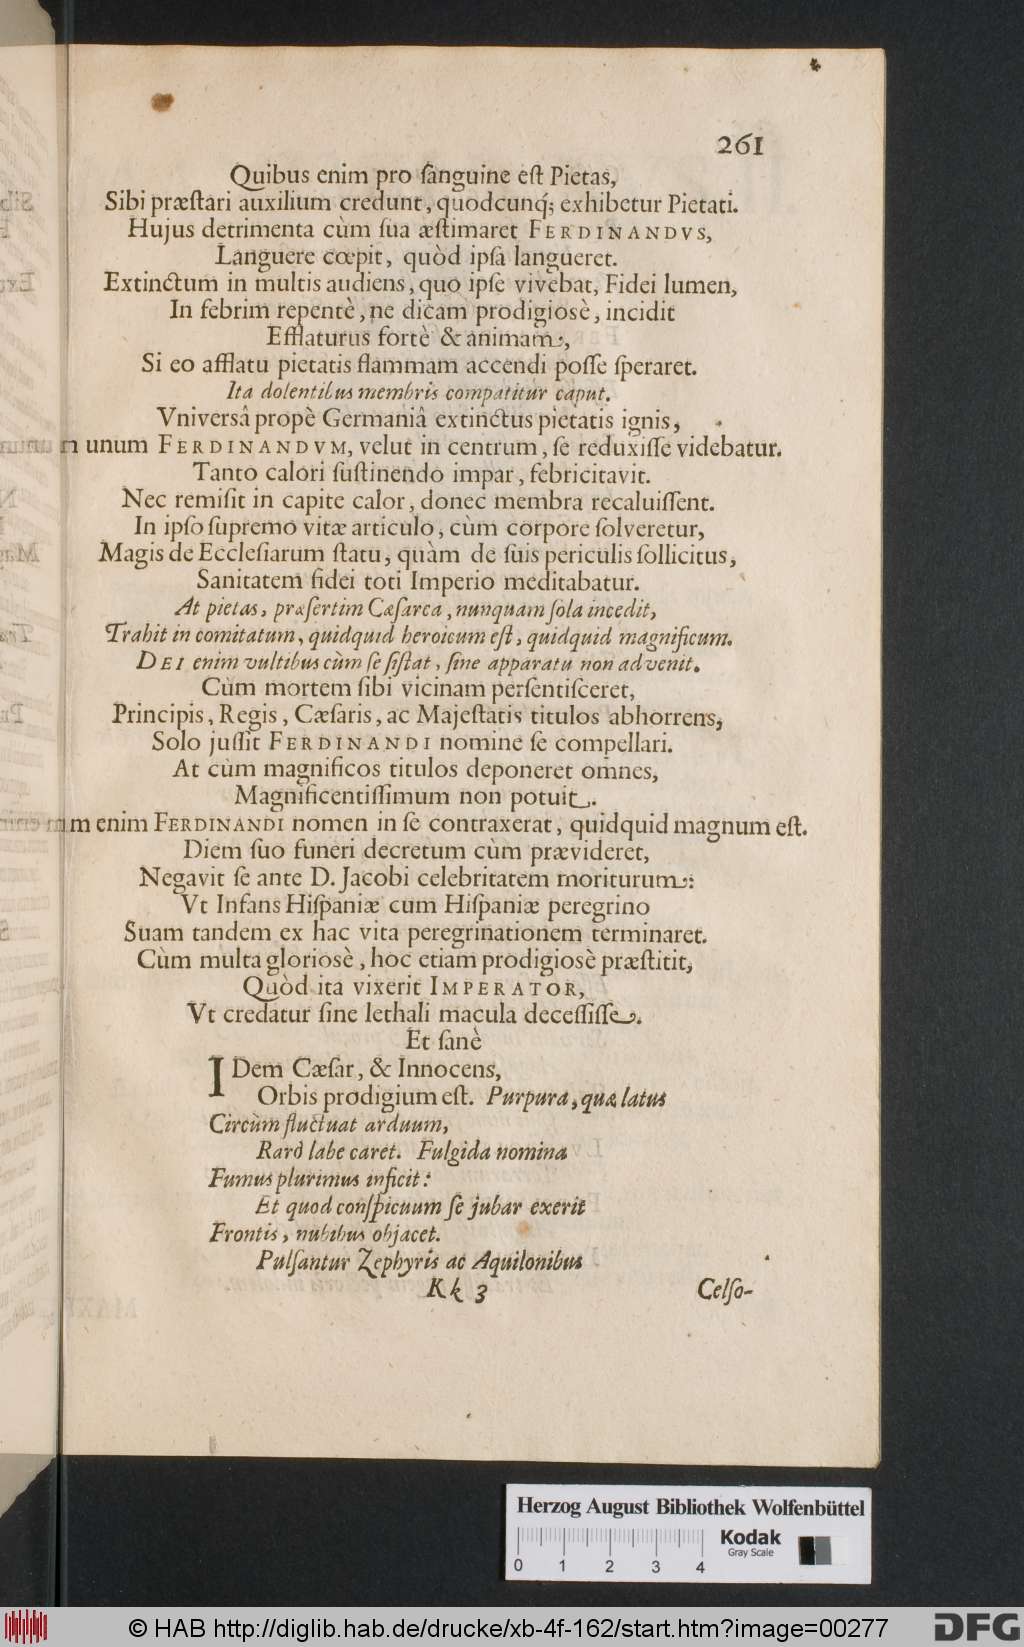 261
Quibus enim pro sanguine est Pietas,
Sibi præstari auxilium credunt, quodcunq; exhibetur Pietati.
Hujus detrimenta cùm sua æstimaret FERDINANDVS,
Languere cœpit, quòd ipsa langueret.
Extinctum in multis audiens, quo ipse vivebat, Fidei lumen,
In febrim repentè, ne dicam prodigiosè, incidit
Efflaturus fortè & animam,
Si eo afflatu pietatis flammam accendi posse speraret.
Ita dolentibus membris compatitur caput.
Vniversâ propè Germaniâ extinctus pietatis ignis,
unum FERDINANDVM, velut in centrum, se reduxisse videbatur.
Tanto calori sustinendo impar, febricitavit.
Nec remisit in capite calor, donec membra recaluissent.
In ipso supremo vitæ articulo, cùm corpore solveretur,
Magis de Ecclesiarum statu, quàm de suis periculis sollicitus,
Sanitatem fidei toti Imperio meditabatur.
At pietas, præsertim Cæsarea, nunquam sola incedit,
Trahit in comitatum, quidquid heroicum est, quidquid magnificum.
DEI enim vultibus cùm se sistat, sine apparatu non advenit.
Cùm mortem sibi vicinam persentisceret,
Principis, Regis, Cæsaris, ac Majestatis titulos abhorrens,
Solo jussit FERDINANDI nomine se compellari.
At cùm magnificos titulos deponeret om̃nes,
Magnificentissimum non potuit.
enim FERDINANDI nomen in se contraxerat, quidquid magnum est.
Diem suo funeri decretum cùm prævideret,
Negavit se ante D. Jacobi celebritatem moriturum:
Vt Infans Hispaniæ cum Hispaniæ peregrino
Suam tandem ex hac vita peregrinationem terminaret.
Cùm multa gloriosè, hoc etiam prodigiosè præstitit,
Quòd ita vixerit IMPERATOR,
Vt credatur sine lethali macula decessisse.
Et sanè
IDem Cæsar, & Innocens,
Orbis prodigium est. Purpura, quæ latus
Circùm fluctuat arduum,
Rarò labe caret. Fulgida nomina
Fumus plurimus inficit:
Et quod conspicuum se jubar exerit
Frontis, nubibus objacet.
Pulsantur Zephyris ac Aquilonibus
Kk 3 Celso-
Herzog August Bibliothek Wolfenbüttel
0 1 2 3 4
Kodak
Gray Scale
© HAB http://diglib.hab.de/drucke/xb-4f-162/start.htm?image=00277
DFG